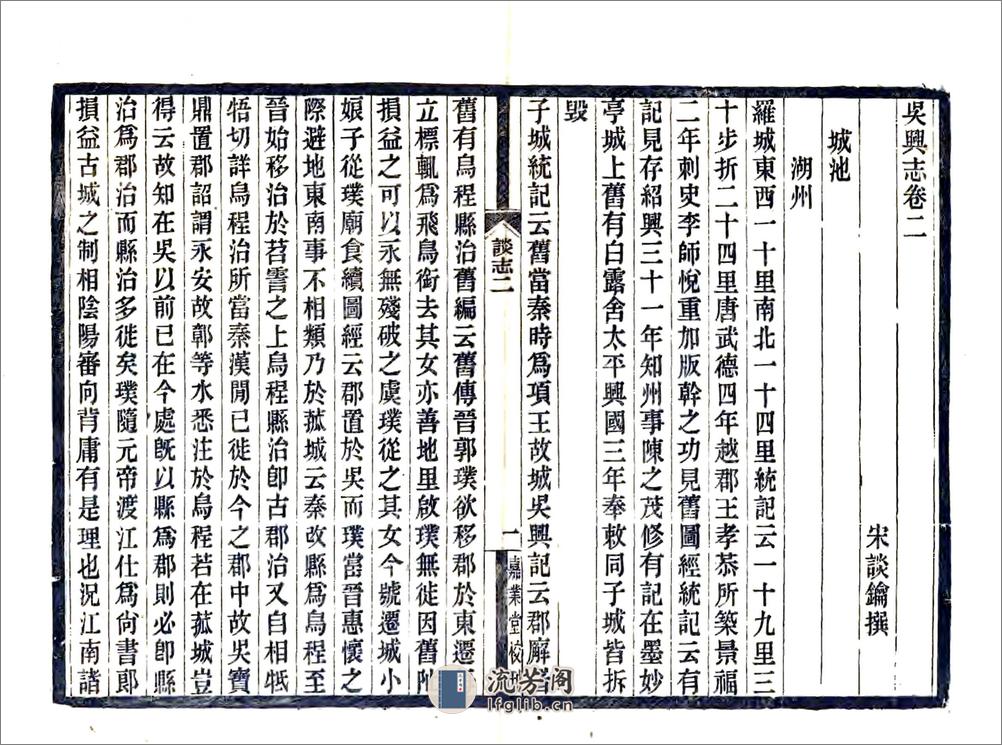 吳興志卷二
宋談鑰撰
城池
湖州
羅城東西一十里南北一十四里統記云一十九里三
十步折二十四里唐武德四年越郡王孝恭所築景福
二年刺史李師悅重加版幹之功見舊圖經統記云有
記見存紹興三十一年知州事陳之茂修有記在墨妙
亭城上舊有白露舍太平興國三年奉敕同子城皆拆
毀
子城統記云舊當秦時爲項王故城吳興記云郡廨
談志二
一
嘉業堂校
舊有烏程縣治舊編云舊傳晉郭璞欲移郡於東遷
立標輒爲飛鳥銜去其女亦善地里啟璞無徙因舊
損益之可以永無殘破之虞璞從之其女今號遷城小
娘子從璞廟食續圖經云郡置於吳而璞當晉惠懷之
際避地東南事不相類乃於菰城云秦改縣爲烏程至
晉始移治於苕霅之上烏程縣治卽古郡治又自相牴
牾切詳烏程治所當秦漢閒已徙於今之郡中故吳寶
鼎置郡詔謂永安故鄣等水悉注於烏程若在菰城豈
得云故知在吳以前已在今處旣以縣爲郡則必卽縣
治爲郡治而縣治多徙矣璞隨元帝渡江仕爲尙書郞
損益古城之制相陰陽審向背庸有是理也況江南諸
流芳阁
lfglib.cn